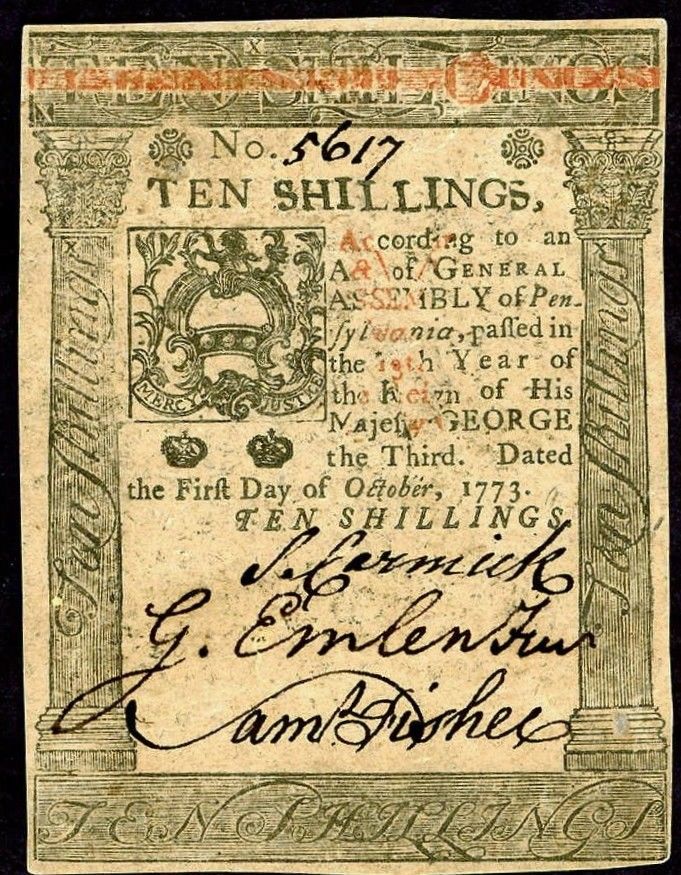 TEN SHILLINGS
No. 5617
TEN SHILLINGS,
According to an
Act of GENERAL
ASSEMBLY of Pen-
ſylvania, paſſed in
the 13th Year of
the Reign of His
Majeſty GEORGE
the Third. Dated
MERCY JUSTICE
the Firſt Day of October, 1773.
TEN SHILLINGS
Ten Shillings
Ten Shillings
S. Cormick
G. Emlen Jun
Saml. Fisher
TEN SHILLINGS